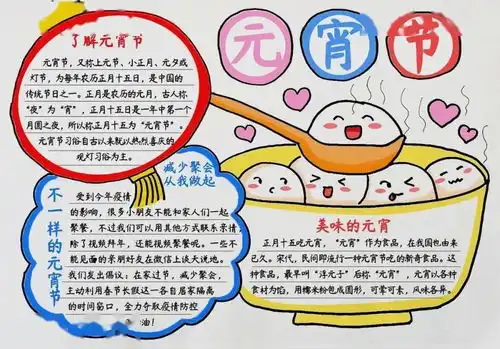 元宵节
了解元宵节
元宵节，又称上元节、小正月、元夕或
灯节，为每年农历正月十五日，是中国的
传统节日之一。正月是农历的元月，古人称
“夜”为“宵”，正月十五日是一年中第一个
月圆之夜，所以称正月十五为“元宵节”。
元宵节习俗自古以来就以热烈喜庆的
观灯习俗为主。
减少聚会
从我做起
不一样的元宵节
受到今年疫情
的影响，很多小朋友不能和家人们一起
聚餐，不过我们可以用其他方式联系亲情，
除了视频拜年，还能视频聚餐呢。一些不
能见面的亲朋好友在微信上谈天说地。
我们发出倡议：在家过节，减少聚会，
主动利用春节长假这一各自居家隔离
的时间窗口，全力夺取疫情防控
油！
美味的元宵
正月十五吃元宵，“元宵”作为食品，在我国也由来
已久。宋代，民间即流行一种元宵节吃的新奇食品。这
种食品，最早叫“浮元子”后称“元宵”，元宵以各种
食材为馅，用糯米粉包成圆形，可荤可素，风味各异。